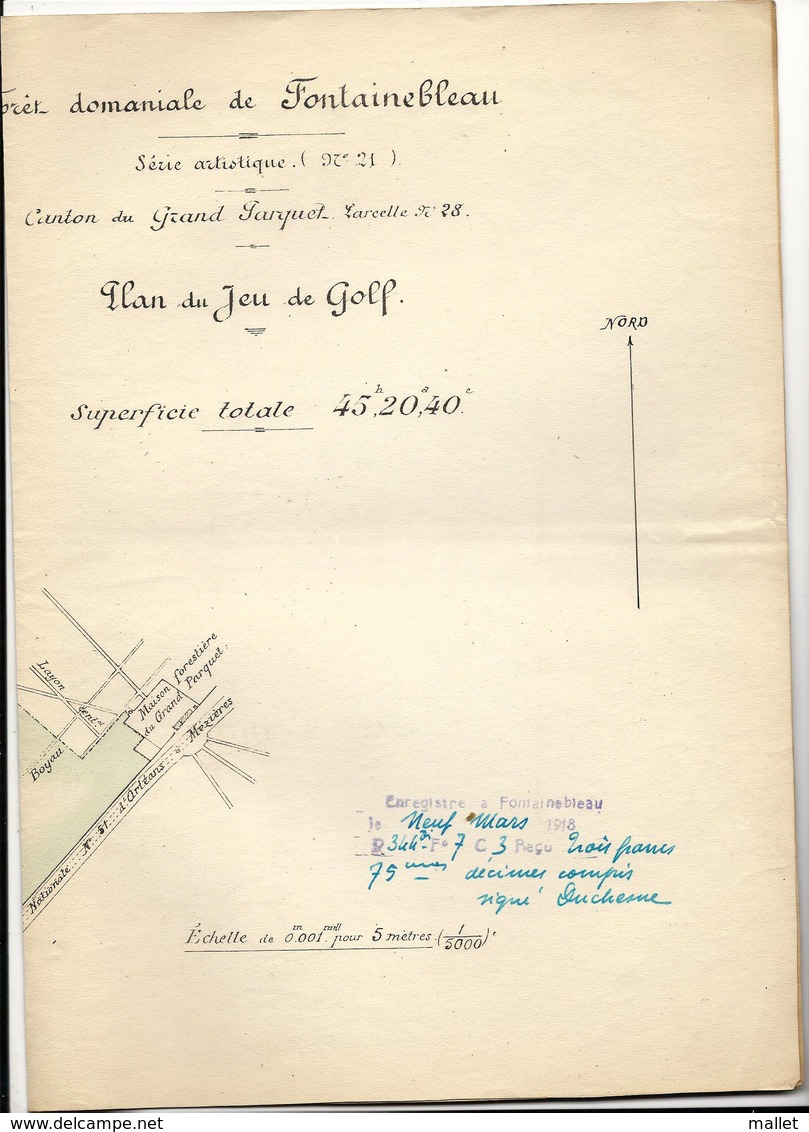 orêt domaniale de Fontainebleau
Série artistique. (N° 21).
Canton du Grand Parquet. Parcelle N° 28.
Plan du Jeu de Golf.
NORD
Superficie totale 45h,20a,40c.
Maison forestière
du Grand Parquet.
Layon
Cent.al
Boyau
Nationale N° 51 d'Orléans à Mézières
Enregistré a Fontainebleau
le Neuf Mars 1918
F° 7 C 3 Reçu trois francs
75 cmes décimes compris
signé Duchesne
Échelle de 0m.001mill pour 5 mètres (1/5000)e
www.delcampe.net
mallet